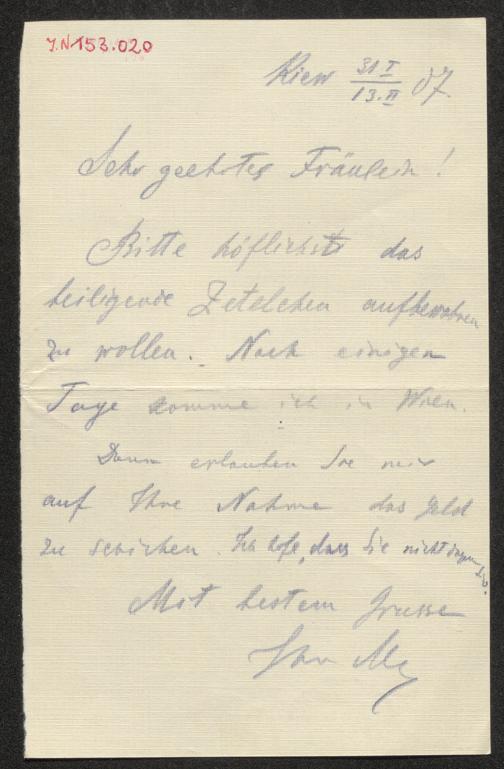 J.N. 153.020
Kiew 31 I / 13. II 07.
Sehr geehrtes Fräulein!
Bitte höflichst das
beiligende Zetelchen aufbewahren
zu wollen. Nach einigen
Tage komme ich in Wien.
Dann erlauben Sie mir
auf Ihre Nahme das Geld
zu schicken. Ich hofe, dass Sie nicht
Mit bestem Grusse
Ihr